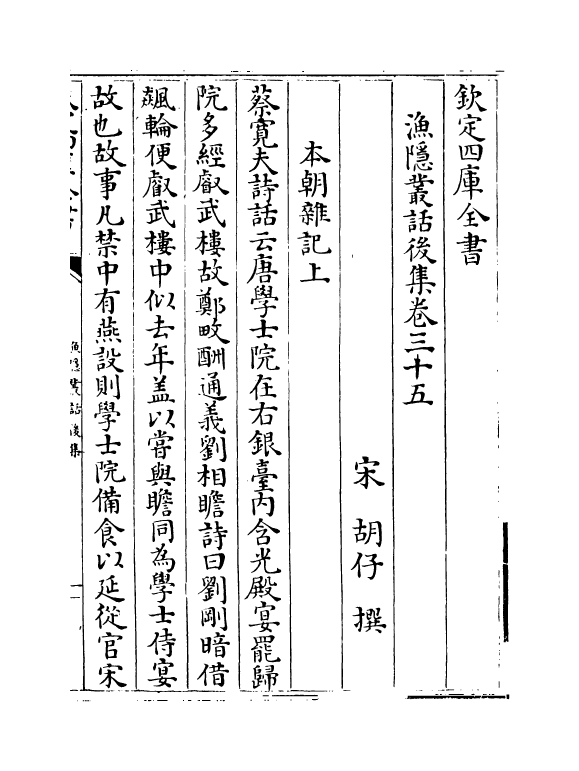 欽定四庫全書
漁隱叢話後集卷三十五
宋 胡仔 撰
本朝雜記上
蔡寛夫詩話云唐學士院在右銀臺內含光殿宴罷歸
院多經叡武樓故鄭畋酬通義劉相瞻詩曰劉剛暗借
飆輪便叡武樓中似去年盖以嘗與瞻同為學士侍宴
故也故事凡禁中有燕設則學士院備食以延從官宋
漁隱叢話後集
一